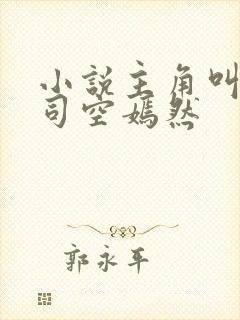 小説主角叫
司空嫣然
郭永年